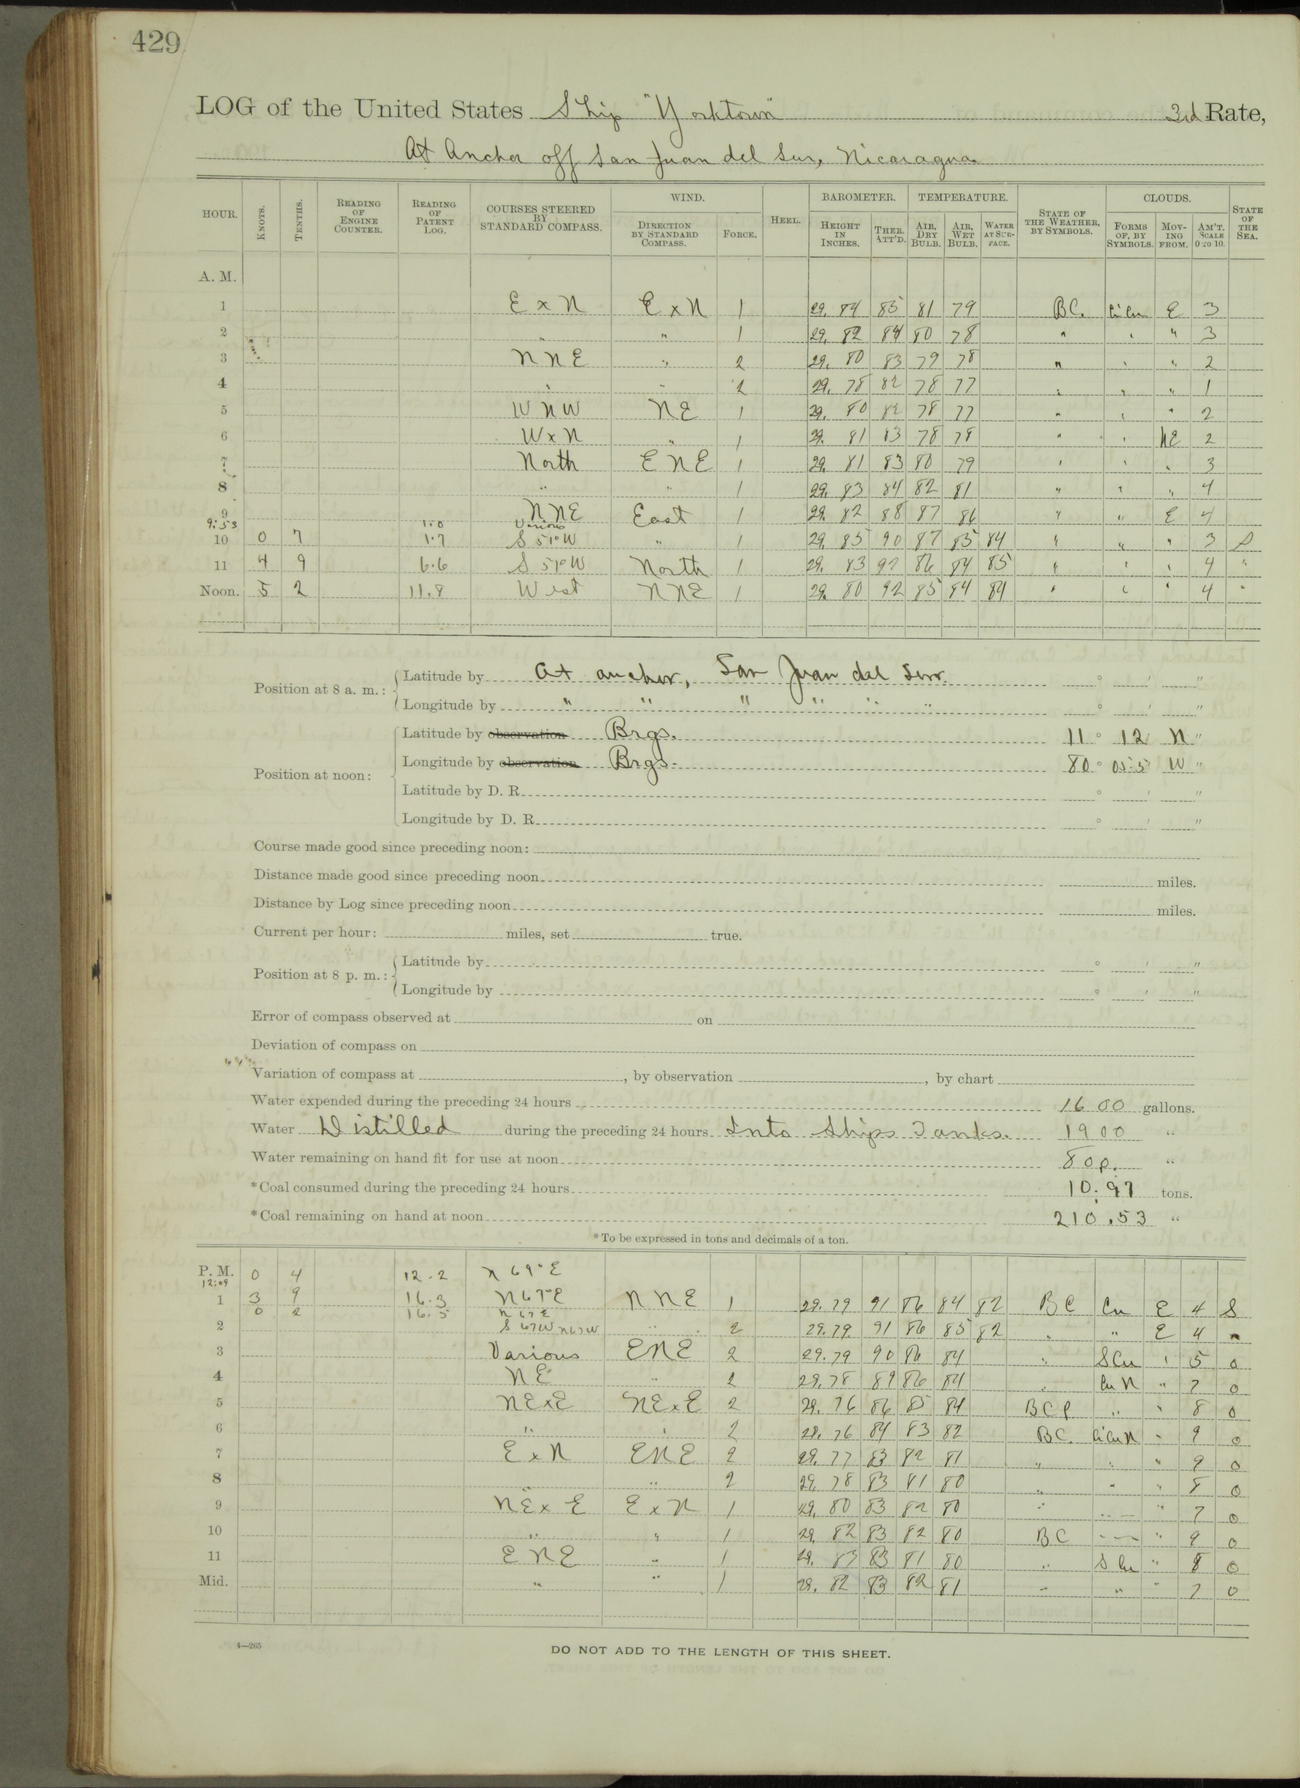 429
LOG of the United States Ship "Yorktown" 3rd Rate,
At Anchor off San Juan del Sur, Nicaragua
HOUR. KNOTS. TENTHS. READING OF ENGINE COUNTER. READING OF PATENT LOG. COURSES STEERED BY STANDARD COMPASS. WIND. DIRECTION BY STANDARD COMPASS. FORCE. HEEL. BAROMETER. HEIGHT IN INCHES. THER. ATT'D. TEMPERATURE. AIR, DRY BULB. AIR, WET BULB. WATER AT SURFACE. STATE OF THE WEATHER, BY SYMBOLS. CLOUDS. FORMS OF, BY SYMBOLS. MOVING FROM. AM'T. SCALE 0 TO 10. STATE OF THE SEA.
A. M.
1 E x N E x N 1 29. 84 85 81 79 BC. Ci Cu E 3
2 " " 1 29. 82 84 80 78 " " " 3
3 NNE " 2 29. 80 83 79 78 " " " 2
4 " " 2 29. 78 82 78 77 " " " 1
5 WNW NE 1 29. 80 82 78 77 " " " 2
6 W x N " 1 29. 81 83 78 78 " " NE 2
7 North ENE 1 29. 81 83 80 79 " " " 3
8 " " 1 29. 83 84 82 81 " " " 4
9 NNE East 1 29. 82 88 87 86 " " E 4
9:53 1.0 Various
10 0 7 1.7 S 51° W " 1 29. 85 90 87 85 84 " " " 3 S
11 4 9 6.6 S 51° W North 1 29. 83 92 86 84 85 " " " 4 "
Noon. 5 2 11.8 West NNE 1 29. 80 92 85 84 84 " " " 4 "
Position at 8 a. m.: Latitude by At anchor, San Juan del Sur. ° ' "
Longitude by " " " " " " ° ' "
Position at noon: Latitude by observation Brgs. 11° 12' N "
Longitude by observation Brgs. 80° 05'5 W "
Latitude by D. R. ° ' "
Longitude by D. R. ° ' "
Course made good since preceding noon:
Distance made good since preceding noon miles.
Distance by Log since preceding noon miles.
Current per hour: miles, set true.
Position at 8 p. m.: Latitude by ° ' "
Longitude by ° ' "
Error of compass observed at on
Deviation of compass on
Variation of compass at , by observation , by chart
Water expended during the preceding 24 hours 1600 gallons.
Water Distilled during the preceding 24 hours Into Ships Tanks. 1900 "
Water remaining on hand fit for use at noon "
*Coal consumed during the preceding 24 hours 10.97 tons.
*Coal remaining on hand at noon 210.53 "
*To be expressed in tons and decimals of a ton.
P. M. 12:09 0 4 12.2 N 69° E
1 3 9 16.3 N 67° E NNE 1 29.79 91 86 84 82 BC Cu E 4 S
0 2 16.5 N 67 E
2 S 67 W N 67 W " 2 29.79 91 86 85 82 " " E 4 "
3 Various ENE 2 29.79 90 86 84 " S Cu " 5 0
4 NE " 2 29.78 89 86 84 " Cu N " 7 0
5 NE x E NE x E 2 29. 76 86 85 84 BCP " " 8 0
6 " " 2 29.76 84 83 82 BC. Ci Cu N " 9 0
7 E x N ENE 2 29. 77 83 82 81 " " " 9 0
8 " " 2 29. 78 83 81 80 " " " 8 0
9 NE x E E x N 1 29. 80 83 82 80 " " " 7 0
10 " " 1 29. 82 83 82 80 BC " " 9 0
11 ENE " 1 29. 83 83 81 80 " S Cu " 8 0
Mid. " " 1 29. 82 83 82 81 " " " 7 0
4—265
DO NOT ADD TO THE LENGTH OF THIS SHEET.